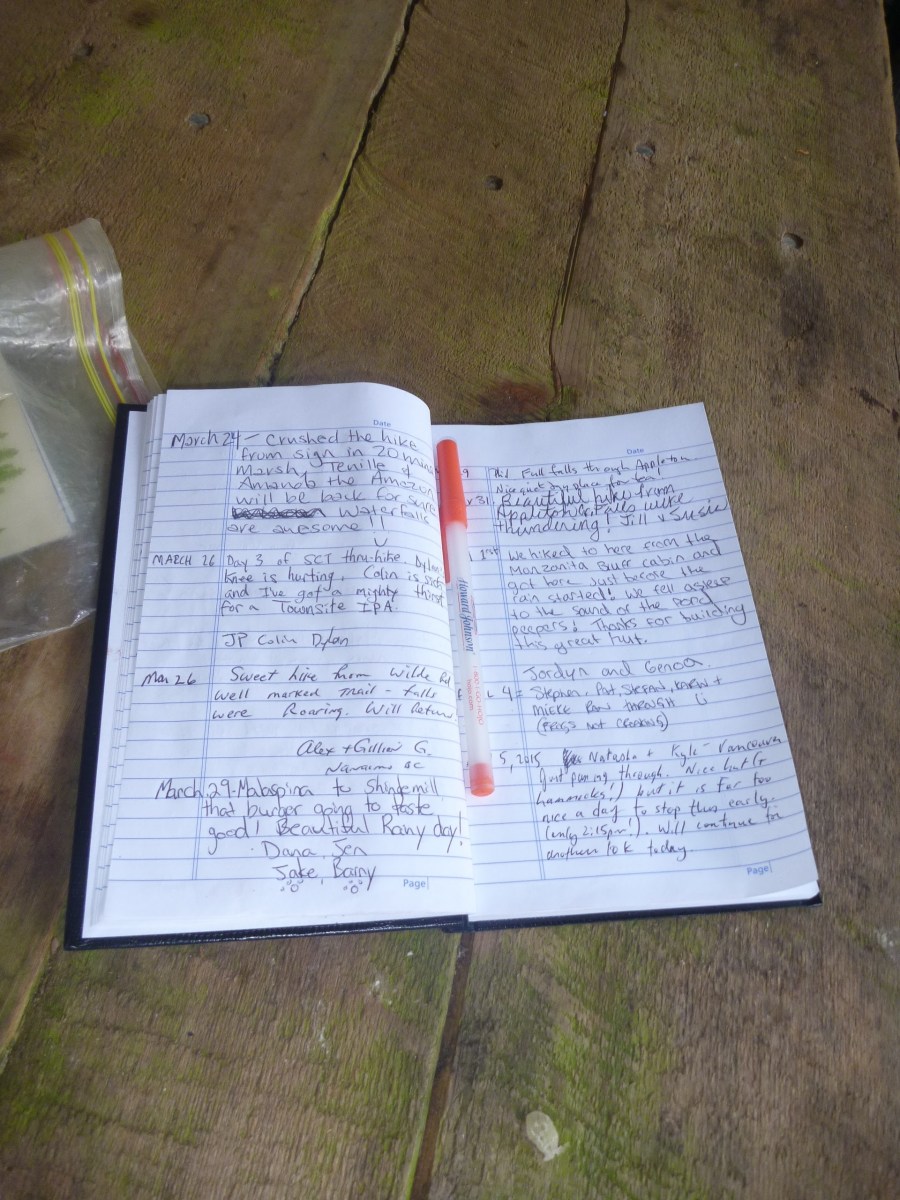 Date
March 24 - Crushed the hike
from sign in 20 mins
Marsh, Tenille &
Amanda the Amazon
will be back for sure
Waterfalls
are awesome!!
MARCH 26 Day 3 of SCT thru-hike. Dylan's
knee is hurting. Colin is sick
and I've got a mighty thirst
for a Townsite IPA.
JP Colin Dylan
Mar 26 Sweet hike from Wilde Rd
well marked trail - falls
were Roaring. Will Return
Alex + Gillian G.
Nanaimo BC
March 29 - Malaspina to Shinglemill
that burger going to taste
good! Beautiful Rainy day!
Dana, Jen
Jake, Barry
Page
Date
9 Full falls through Appleton.
Nice quiet dry place for tea.
31 Beautiful hike from
Appleton. Falls were
thundering! Jill & Susie
1st We hiked to here from the
Manzanita Burr cabin and
got here just before the
rain started! We fell asleep
to the sound of the pond
peepers! Thanks for building
this great hut.
Jordyn and Genoa.
4 = Stephen, Pat, Stefan, Karen +
Micke Ran through
(Frogs not croaking)
5, 2015 Natasha + Kyle - Vancouver
Just passing through. Nice hut (&
hammocks!) but it is far too
nice a day to stop this early.
(only 2:15pm.). Will continue for
another 10k today.
Page
Howard Johnson